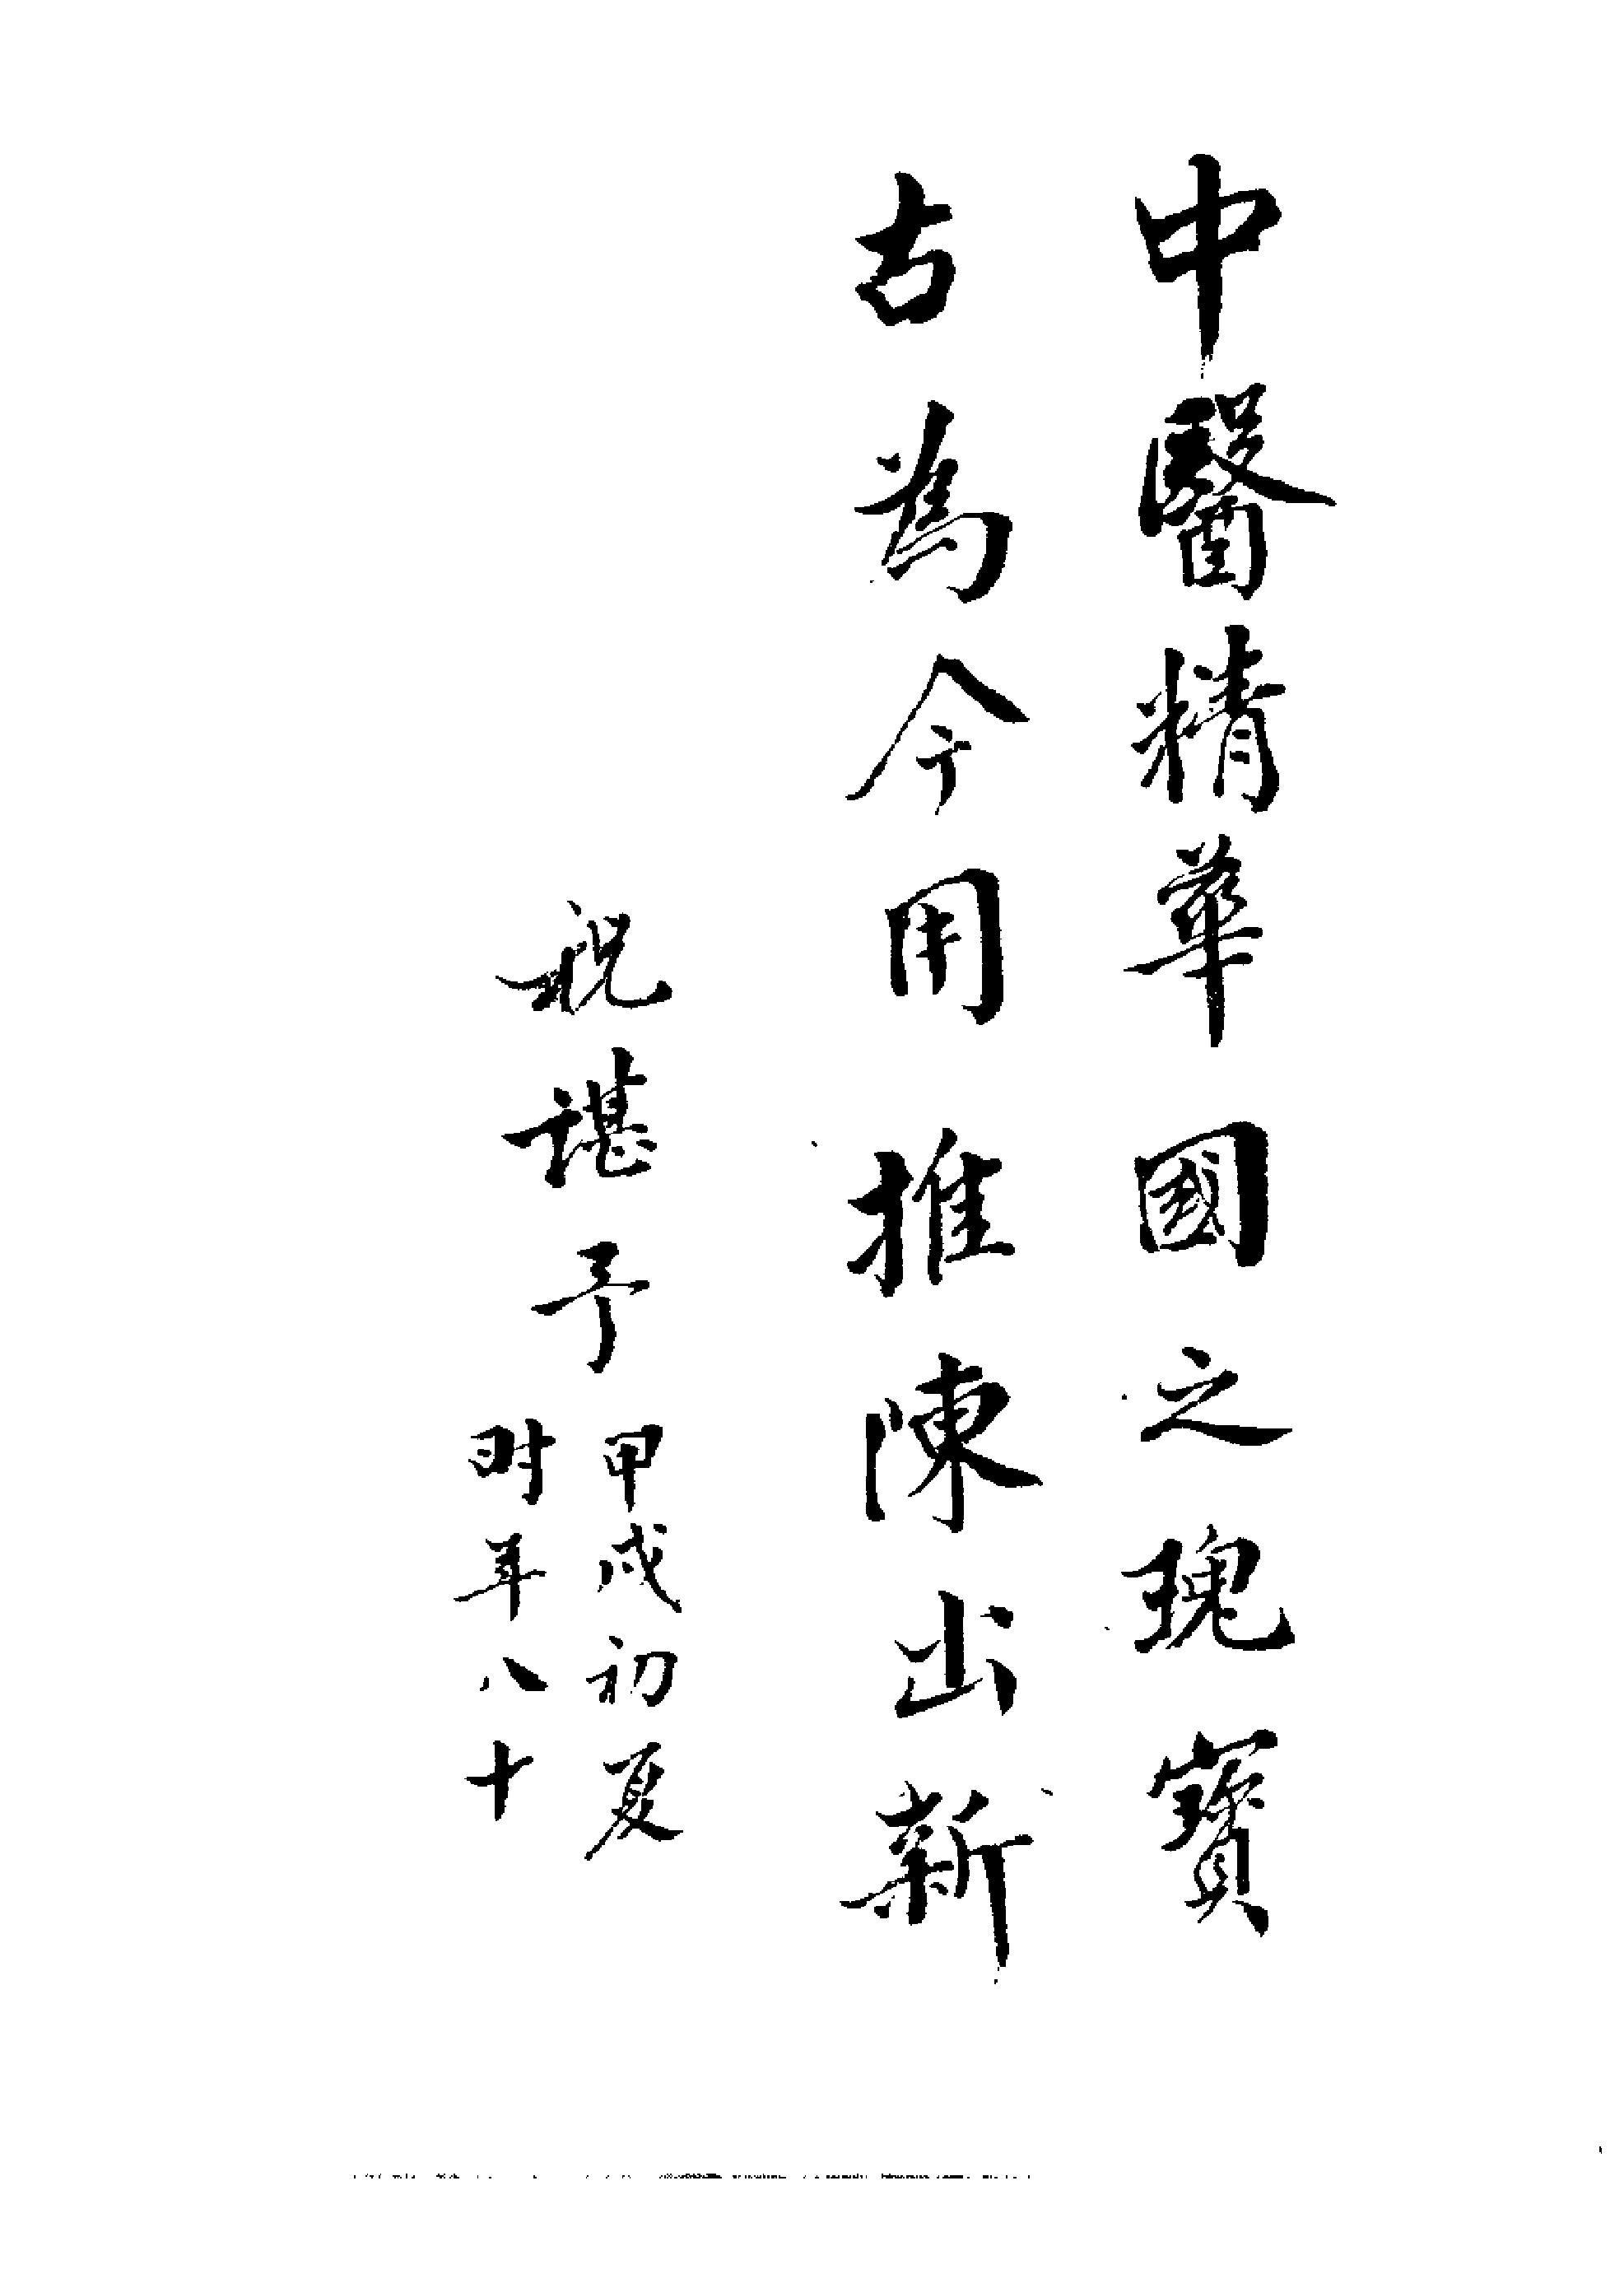 中醫精華國之瑰寶
古為今用推陳出新
祝諶予
甲戌初夏
时年八十